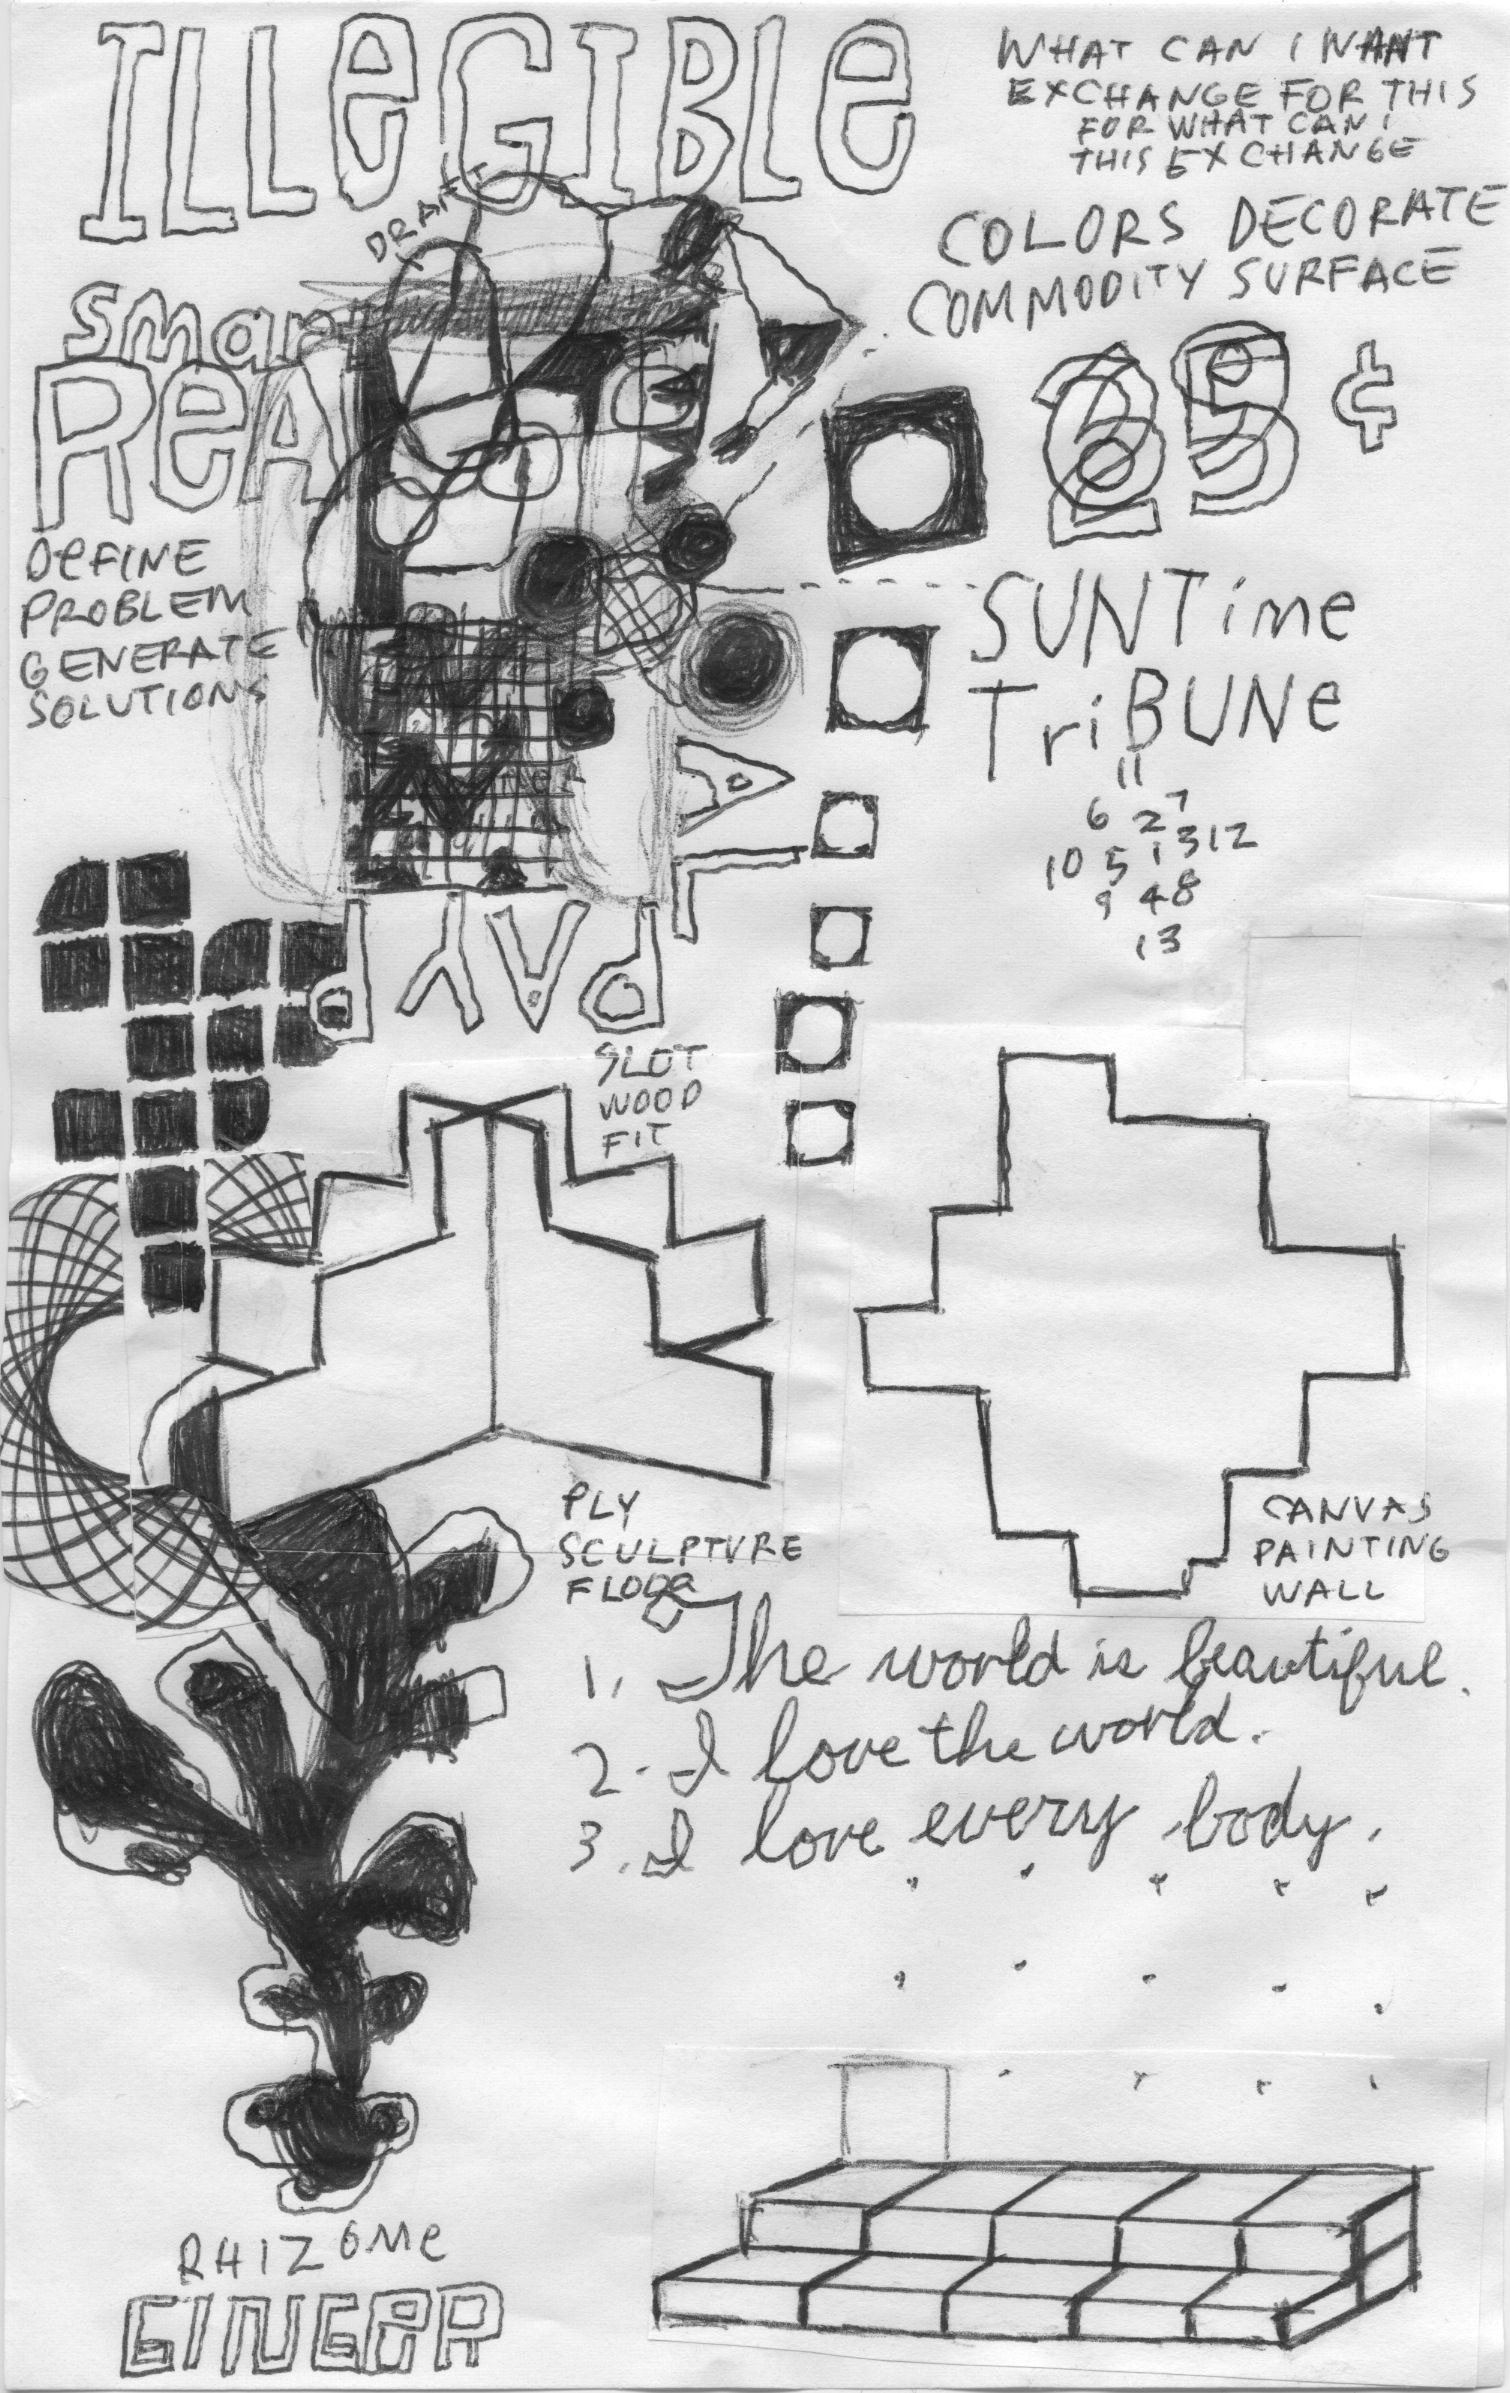 ILLeGIBLe
WHAT CAN I WANT
EXCHANGE FOR THIS
FOR WHAT CAN I
THIS EXCHANGE
DRAFT
COLORS DECORATE
COMMODITY SURFACE
smart
ReA
25 ¢
DeFINE
PROBLEM
GENERATE
SOLUTIONS
SUNTime
TriBUNe
11
6 2 7
10 5 1 3 12
9 4 8
13
PAYP
SLOT
WOOD
FIT
PLY
SCULPTURE
FLOOR
CANVAS
PAINTING
WALL
1. The world is beautiful.
2. I love the world.
3. I love every body.
RHIZOMe
GINGeR